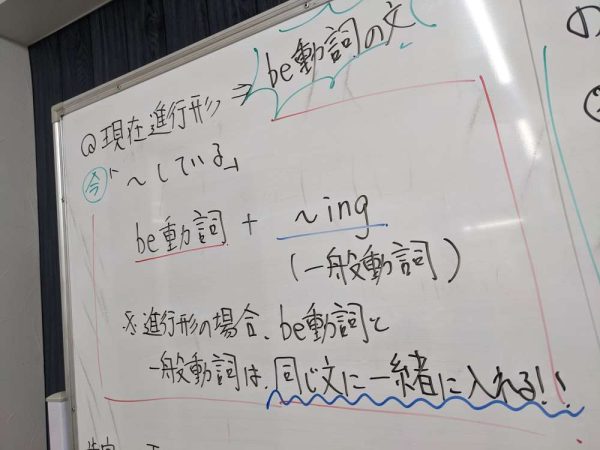 ◎現在進行形 ⇒ be動詞の文
今「~している」
be動詞 + ~ing
(一般動詞)
※進行形の場合、be動詞と
一般動詞は、同じ文に一緒に入れる!!
の